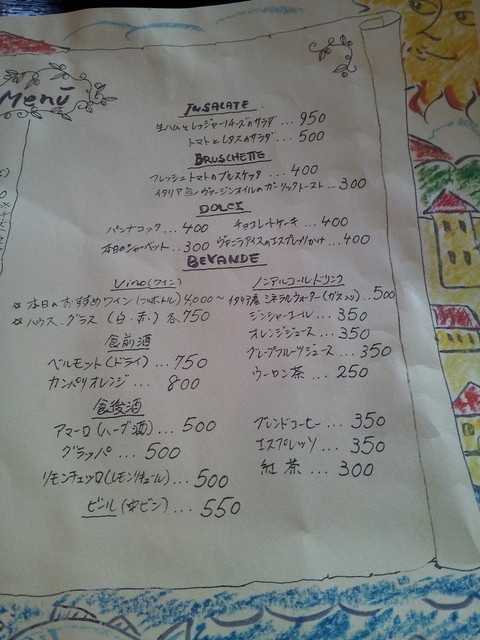 Menù
INSALATE
生ハムとレッジャーノチーズのサラダ...950
トマトとレタスのサラダ...500
BRUSCHETTE
フレッシュトマトのブルスケッタ...400
イタリア産ヴァージンオイルのガーリックトースト...300
DOLCI
パンナコッタ...400
チョコレートケーキ...400
本日のシャーベット...300
ヴァニラアイスのエスプレッソかけ...400
BEVANDE
Vino(ワイン)
本日のおすすめワイン(フルボトル)4,000〜
ハウス グラス (白・赤) 各750
食前酒
ベルモット(ドライ)...750
カンパリオレンジ...800
食後酒
アマーロ(ハーブ酒)...500
グラッパ...500
リモンチェッロ(レモンリキュール)...500
ビール(中ビン)...550
ノンアルコールドリンク
イタリア産 ミネラルウォーター(ガス入り)...500
ジンジャーエール...350
オレンジジュース...350
グレープフルーツジュース...350
ウーロン茶...250
ブレンドコーヒー...350
エスプレッソ...350
紅茶...300